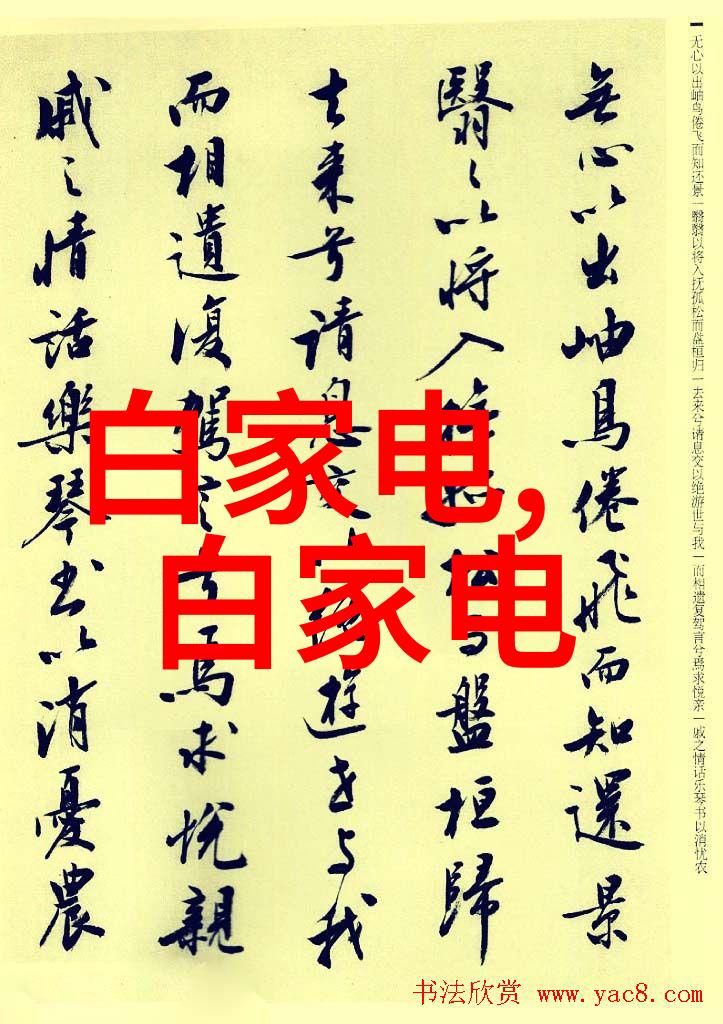 无心以出岫鸟倦飞而知还景｜翳翳以将入抚孤松而盘桓归｜去来兮请息交以绝游世与我｜而相遗复驾言兮焉求悦亲｜戚之情话乐琴书以消忧农
無心以出岫鳥倦飛而知還景
翳々以将入撫孤松而盤桓歸
去来兮请息交遊世与我
而相遺復駕言兮焉求悦親
戚之情話樂琴书以消憂農
白家电,
白家电
书法欣赏 www.yac8.com